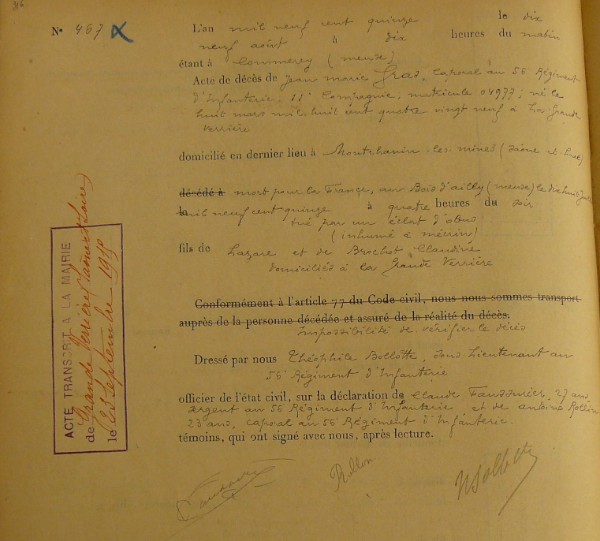 N° 457
L'an mil neuf cent quinze le dix
neuf août à dix heures du matin
étant à Commercy (Meuse)
Acte de décès de Jean Marie Gras, caporal au 56 Régiment
d'Infanterie, 11e Compagnie, matricule 04977, né le
huit mars mil huit cent quatre vingt neuf à La Grande
Verrière
domicilié en dernier lieu à Montchanin-les-mines (Saône et Loire)
décédé à mort pour la France, au Bois d'ailly (Meuse) le dix huit
mil neuf cent quinze à quatre heures du soir
tué par un éclat d'obus
(inhumé à mécrin)
fils de Lazare et de Brochot Claudine
domiciliés à la Grande Verrière
Conformément à l'article 77 du Code civil, nous nous sommes transport
auprès de la personne décédée et assuré de la réalité du décès.
impossibilité de vérifier le décès
Dressé par nous Théophile Bollotte, sous Lieutenant au
56 Régiment d'Infanterie
officier de l'état civil, sur la déclaration de Claude 27 ans
sergent au 56 Régiment d'Infanterie, et de Rollon
23 ans, caporal au 56 Régiment d'Infanterie.
témoins, qui ont signé avec nous, après lecture.
Rollon
ACTE TRANSCRIT A LA MAIRIE
de Grande Verrière (Saône et Loire)
le septembre 1919